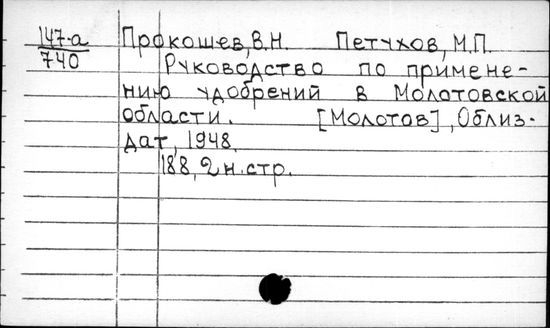 147-а Прокошев, В.Н. Петухов, М.П.
740 Руководство по примене-
нию удобрений в Молотовской
области. [Молотов], Облиз-
дат, 1948.
188, 2 н. стр.